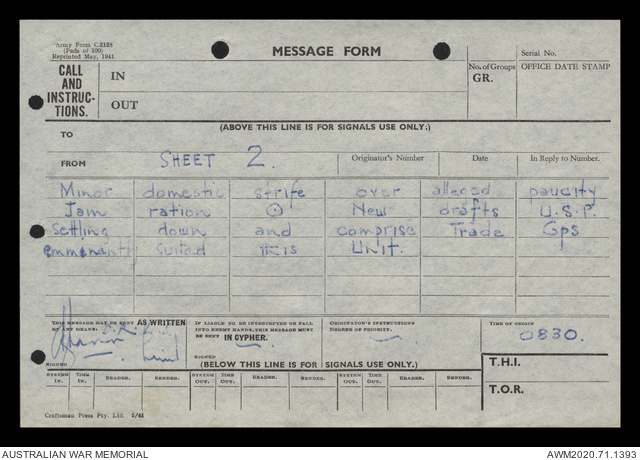 Army Form C.2128
(Pads of 100)
Reprinted May, 1941.
MESSAGE FORM
Serial No.
CALL AND INSTRUC-TIONS.
IN
OUT
No. of Groups
GR.
OFFICE DATE STAMP
(ABOVE THIS LINE IS FOR SIGNALS USE ONLY:)
TO
FROM SHEET 2. Originator's Number Date In Reply to Number.
Minor domestic strife over alleged paucity
Jam ration ⊙ New drafts U.S.P.
Settling down and comprise Trade Gps
emmenantl suited this Unit.
THIS MESSAGE MAY BE SENT AS WRITTEN BY ANY MEANS:
IF LIABLE TO BE INTERCEPTED OR FALL INTO ENEMY HANDS, THIS MESSAGE MUST BE SENT IN CYPHER.
ORIGINATOR'S INSTRUCTIONS
DEGREE OF PRIORITY.
TIME OF ORIGIN
0830.
SIGNED
SIGNED
(BELOW THIS LINE IS FOR SIGNALS USE ONLY.)
T.H.I.
SYSTEM IN. TIME IN. READER. SENDER. SYSTEM OUT. TIME OUT. READER. SENDER. SYSTEM OUT. TIME OUT. READER. SENDER.
T.O.R.
Craftsman Press Pty. Ltd. 5/41
AUSTRALIAN WAR MEMORIAL
AWM2020.71.1393